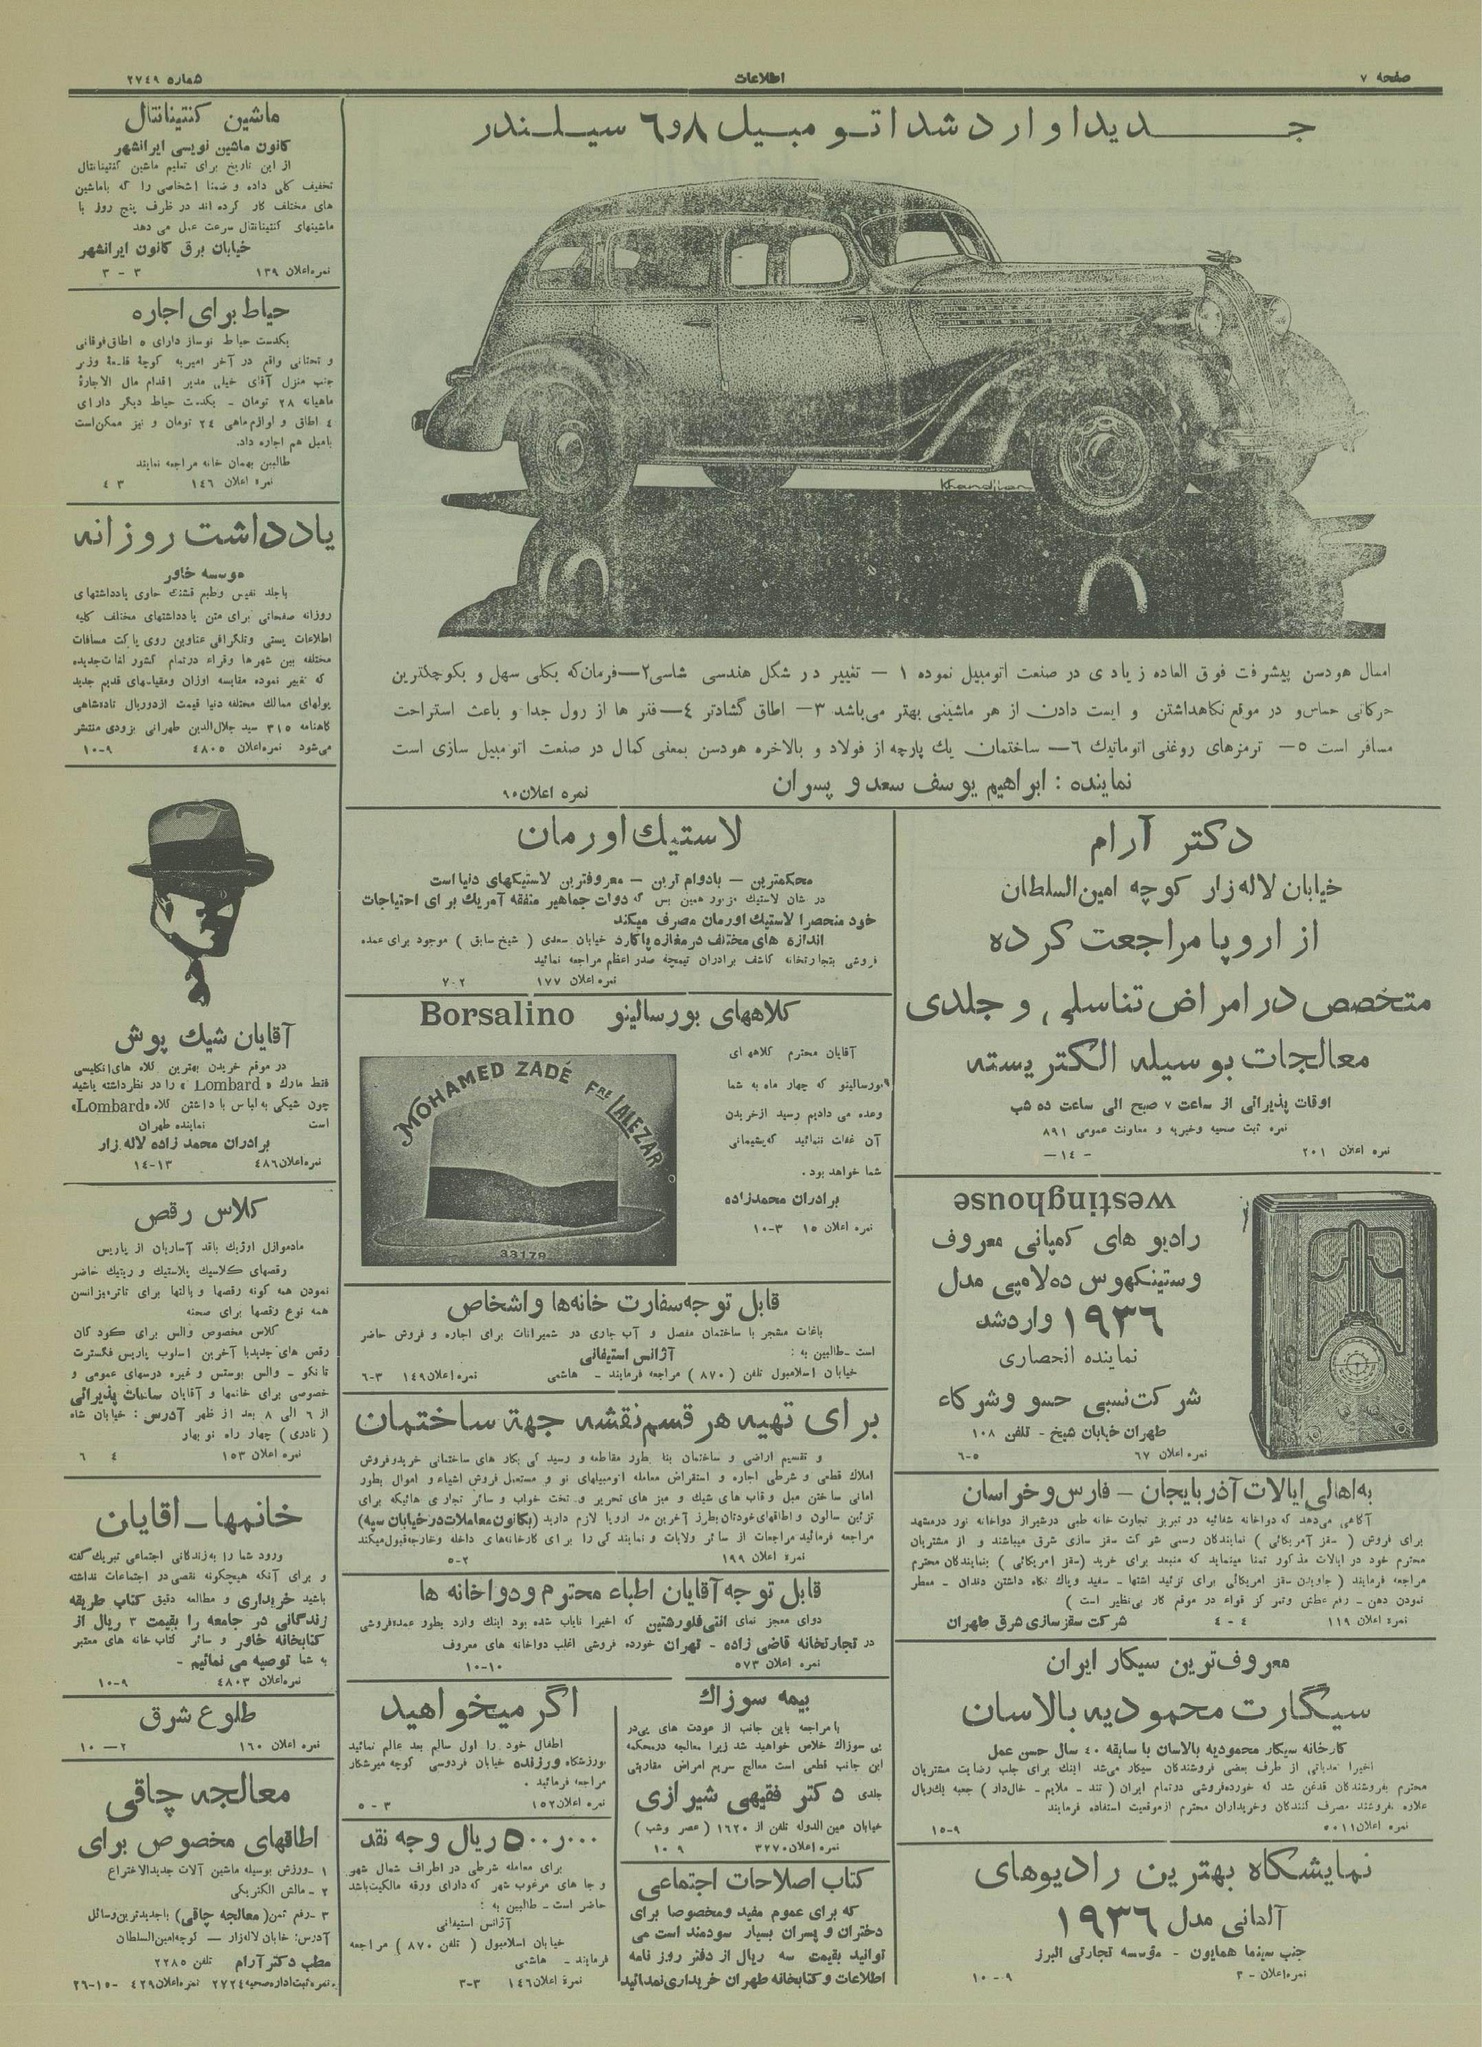 صفحه ۷
اطلاعات
شماره ۲۷٤۹
جدیدا وارد شد اتومبیل ۸و٦ سیلندر
Khandjian
امسال هودسن پیشرفت فوق العاده زیادی در صنعت اتومبیل نموده ۱ — تغییر در شکل هندسی شاسی ۲—فرمان‌که بکلی سهل و بکوچکترین
حرکاتی حساس‌و در موقع نگاهداشتن و ایست دادن از هر ماشینی بهتر می‌باشد ۳— اطاق گشادتر ٤—فنر ها از رول جدا و باعث استراحت
مسافر است ٥— ترمزهای روغنی اتوماتیك ٦— ساختمان یك پارچه از فولاد و بالاخره هودسن بمعنی کمال در صنعت اتومبیل سازی است
نماینده : ابراهیم یوسف سعد و پسران
نمره اعلان ۹۰
دکتر آرام
خیابان لاله‌زار کوچه امین‌السلطان
از اروپا مراجعت کرده
متخصص در امراض تناسلی و جلدی
معالجات بوسیله الکتریسته
اوقات پذیرائی از ساعت ۷ صبح الی ساعت ده شب
نمره ثبت صحیه وخیریه و معاونت عمومی ۸۹۱
نمره اعلان ۲۰۱ —۱٤—
westinghouse
رادیو های کمپانی معروف
وستینکهوس ده‌لامپی مدل
۱۹۳٦ وارد‌شد
نماینده انحصاری
شرکت نسبی حسو و شرکاء
طهران خیابان شیخ – تلفن ۱۰۸
نمره اعلان ٦۷ ٥–٦
به‌اهالی ایالات آذربایجان – فارس و خراسان
آگاهی می‌دهد که دواخانه شفائیه در تبریز تجارت خانه طبی در‌شیراز دواخانه نور در‌مشهد
برای فروش ( سقز آمریکائی ) نمایندگان رسمی شرکت سقز سازی شرق میباشند و از مشتریان
محترم خود در ایالات مذکور تمنا مینماید که منبعد برای خرید (سقز امریکائی ) بنمایندگان محترم
مراجعه فرمایند ( جاویدن سقز امریکائی برای تزئید اشتها – سفید و‌پاك نگاه داشتن دندان – معطر
نمودن دهن – رفع عطش و‌تمرکز قواء در موقع کار بی‌نظیر است )
نمره اعلان ۱۱۹ ٤ – ٤ شرکت سقز‌سازی شرق طهران
معروف‌ترین سیکار ایران
سیگارت محمودیه بالاسان
کارخانه سیکار محمودیه بالاسان با سابقه ٤۰ سال حسن عمل
اخیرا تعدیاتی از طرف بعضی فروشندگان سیکار می‌شد اینك برای جلب رضایت مشتریان
محترم بفروشندگان قدغن شد که خورده‌فروشی در‌تمام ایران ( تند – ملایم – خال‌دار ) جعبه یك‌ریال
علاوه نفروشند مصرف کنندگان و‌خریداران محترم از‌موقعیت استفاده فرمایند
نمره اعلان ٥۰۱۱ ۹–۱٥
نمایشگاه بهترین رادیوهای
آلمانی مدل ۱۹۳٦
جنب سینما همایون – مؤسسه تجارتی البرز
نمره‌اعلان – ۳ ۹ – ۱۰
لاستیك اورمان
محکمترین – بادوام ترین – معروفترین لاستیکهای دنیا است
در شان لاستیك مزبور همین بس که دوات جماهیر متفقه آمریك برای احتیاجات
خود منحصرا لاستیك اورمان مصرف میکند
اندازه های مختلف در‌مغازه پاکارد خیابان سعدی ( شیخ سابق ) موجود برای عمده
فروشی بتجارتخانه کاشف برادران تیمچهٔ صدر اعظم مراجعه نمائید
نمره اعلان ۱۷۷ ۲–۷
کلاههای بورسالینو Borsalino
MOHAMED ZADÉ Fre LALEZAR
33179
آقایان محترم کلاههای
بورسالینو که چهار ماه به شما
وعده می دادیم رسید از‌خریدن
آن غفلت ننمائید که‌پشیمانی
شما خواهد بود .
برادران محمدزاده
نمره اعلان ۱٥ ۳–۱۰
قابل توجه سفارت خانه‌ها و اشخاص
باغات مشجر با ساختمان مفصل و آب جاری در شمیرانات برای اجاره و فروش حاضر
است – طالبین به : آژانس استیفانی
خیابان اسلامبول تلفن ( ۸۷۰ ) مراجعه فرمایند – هاشمی نمره‌اعلان ۱٤۹ ۳–٦
برای تهیه هر قسم نقشه جهة ساختمان
و تقسیم اراضی و ساختمان بنا بطور مقاطعه و رسیدگی بکار های ساختمانی خرید‌و‌فروش
املاك قطعی و شرطی اجاره و استقراض معامله اتومبیلهای نو و مستعمل فروش اشیاء و اموال بطور
امانی ساختن مبل و قاب های شیك و میز های تحریر و تخت خواب و سائر نجاری هائیکه برای
تزئین سالون و اطاقهای خودتان بطرز آخرین مد اروپا لازم دارید (بکانون معاملات در خیابان سپه)
مراجعه فرمائید مراجعات از سائر ولایات و نمایندگی را برای کارخانه‌های داخله و‌خارجه‌قبول‌میکند
نمره اعلان ۱۹۹ ۲–٥
قابل توجه آقایان اطباء محترم و دواخانه ها
دوای معجز نمای انتی‌فلورشتین که اخیرا نایاب شده بود اینك وارد بطور عمده‌فروشی
در تجارتخانه قاضی زاده – تهران خورده فروشی اغلب دواخانه های معروف
نمره اعلان ٥۷۳ ۱۰–۱۰
بیمه سوزاك
با مراجعه باین جانب از عودت های پی‌در
پی سوزاك خلاص خواهید شد زیرا معالجه در‌محکمه
این جانب قطعی است معالج سریع امراض مقاربتی
جلدی دکتر فقیهی شیرازی
خیابان عین الدوله تلفن از ۱٦۲۰ ( عصر و‌شب )
نمره‌اعلان ۳۲۷۰ ۹ ۱۰
کتاب اصلاحات اجتماعی
که برای عموم مفید و‌مخصوصا برای
دختران و پسران بسیار سودمند است می
توانید بقیمت سه ریال از دفتر روز نامه
اطلاعات و‌کتابخانه طهران خریداری نمائید
اگر میخواهید
اطفال خود را اول سالم بعد عالم نمائید
بورزشگاه ورزنده خیابان فردوسی کوچه میرشکار
مراجعه فرمائید .
نمره اعلان ۱٥۲ ۳ – ٥
٥۰۰ر۰۰۰ ریال وجه نقد
برای معامله شرطی در اطراف شمال شهر
و جا های مرغوب شهر که‌دارای ورقه مالکیت‌باشد
حاضر است – طالبین به :
آژانس استیفانی
خیابان اسلامبول ( تلفن ۸۷۰ ) مراجعه
فرمایند – هاشمی
نمرهٔ اعلان ۱٤٦ ۳–۳
ماشین کنتینانتال
کانون ماشین نویسی ایرانشهر
از این تاریخ برای تعلیم ماشین کنتینانتال
تخفیف کلی داده و ضمنا اشخاصی را که با‌ماشین
های مختلف کار کرده اند در ظرف پنج روز با
ماشینهای کنتینانتال سرعت عمل می دهد
خیابان برق کانون ایرانشهر
نمره‌اعلان ۱۳۹ ۳ – ۳
حیاط برای اجاره
یکدست حیاط نوساز دارای ٥ اطاق‌فوقانی
و تحتانی واقع در آخر امیریه کوچهٔ قلعهٔ وزیر
جنب منزل آقای خیلی مدیر اقدام مال الاجارهٔ
ماهیانه ۲۸ تومان – یکدست حیاط دیگر دارای
٤ اطاق و لوازم‌ماهی ۲٤ تومان و نیز ممکن‌است
بامبل هم اجاره داد.
طالبین بهمان خانه مراجعه نمایند
نمره اعلان ۱٤٦ ۳ ٤
یادداشت روزانه
موسسه خاور
با‌جلد نفیس و‌طبع قشنك حاوی یادداشتهای
روزانه صفحاتی برای متن یادداشتهای مختلف کلیه
اطلاعات پستی و‌تلگرافی عناوین روی پاکت مسافات
مختلفه بین شهرها و‌قراء در‌تمام کشور لغات‌جدیده
که تغییر نموده مقایسه اوزان و‌مقیاسهای قدیم جدید
پولهای ممالك مختلفه دنیا قیمت از‌دو‌ریال تا‌ده‌شاهی
گاهنامه ۳۱٥ سید جلال‌الدین طهرانی بزودی منتشر
می‌شود نمره‌اعلان ٤۸۰٥ ۹–۱۰
آقایان شیك پوش
در موقع خریدن بهترین کلاه های‌انگلیسی
فقط مارك « Lombard » را در نظر‌داشته باشید
چون شیکی به‌لباس با داشتن کلاه «Lombard»
است نماینده طهران
برادران محمد زاده لاله زار
نمره‌اعلان ٤۸٦ ۱۳–۱٤
کلاس رقص
مادموازل اوژیك باقد آساریان از پاریس
رقصهای کلاسیك پلاستیك و ریتیك حاضر
نمودن همه گونه رقصها و بالتها برای تاتر‌دیزانسن
همه نوع رقصها برای صحنه
کلاس مخصوص والس برای کودکان
رقص های جدید‌با آخرین اسلوب پاریس فکسترت
تانکو – والس بوستس و غیره درسهای عمومی و
خصوصی برای خانمها و آقایان ساعات پذیرائی
از ٦ الی ۸ بعد از ظهر آدرس : خیابان شاه
( نادری ) چهار راه نو بهار
نمره اعلان ۱٥۳ ٤ ٦
خانمها – اقایان
ورود شما را به‌زندگانی اجتماعی تبریك گفته
و برای آنکه هیچگونه نقصی در اجتماعات نداشته
باشید خریداری و مطالعه دقیق کتاب طریقه
زندگانی در جامعه را بقیمت ۳ ریال از
کتابخانه خاور و سائر کتاب خانه های معتبر
به شما توصیه می نمائیم –
نمره‌اعلان ٤۸۰۳ ۹–۱۰
طلوع شرق
نمره اعلان ۱٦۰ ۲–۱۰
معالجه چاقی
اطاقهای مخصوص برای
۱–ورزش بوسیله ماشین آلات جدیدالاختراع
۲–مالش الکتریکی
۳–رفع سمن( معالجه چاقی) با‌جدیدترین‌وسائل
آدرس: خیابان لاله‌زار — کوچه‌امین‌السلطان
مطب دکتر آرام تلفن ۲۲۸٥
نمره‌ثبت‌اداره‌صحیه ۲۷۲٤ نمره‌اعلان ٤۲۹ –۱٥–۲٦